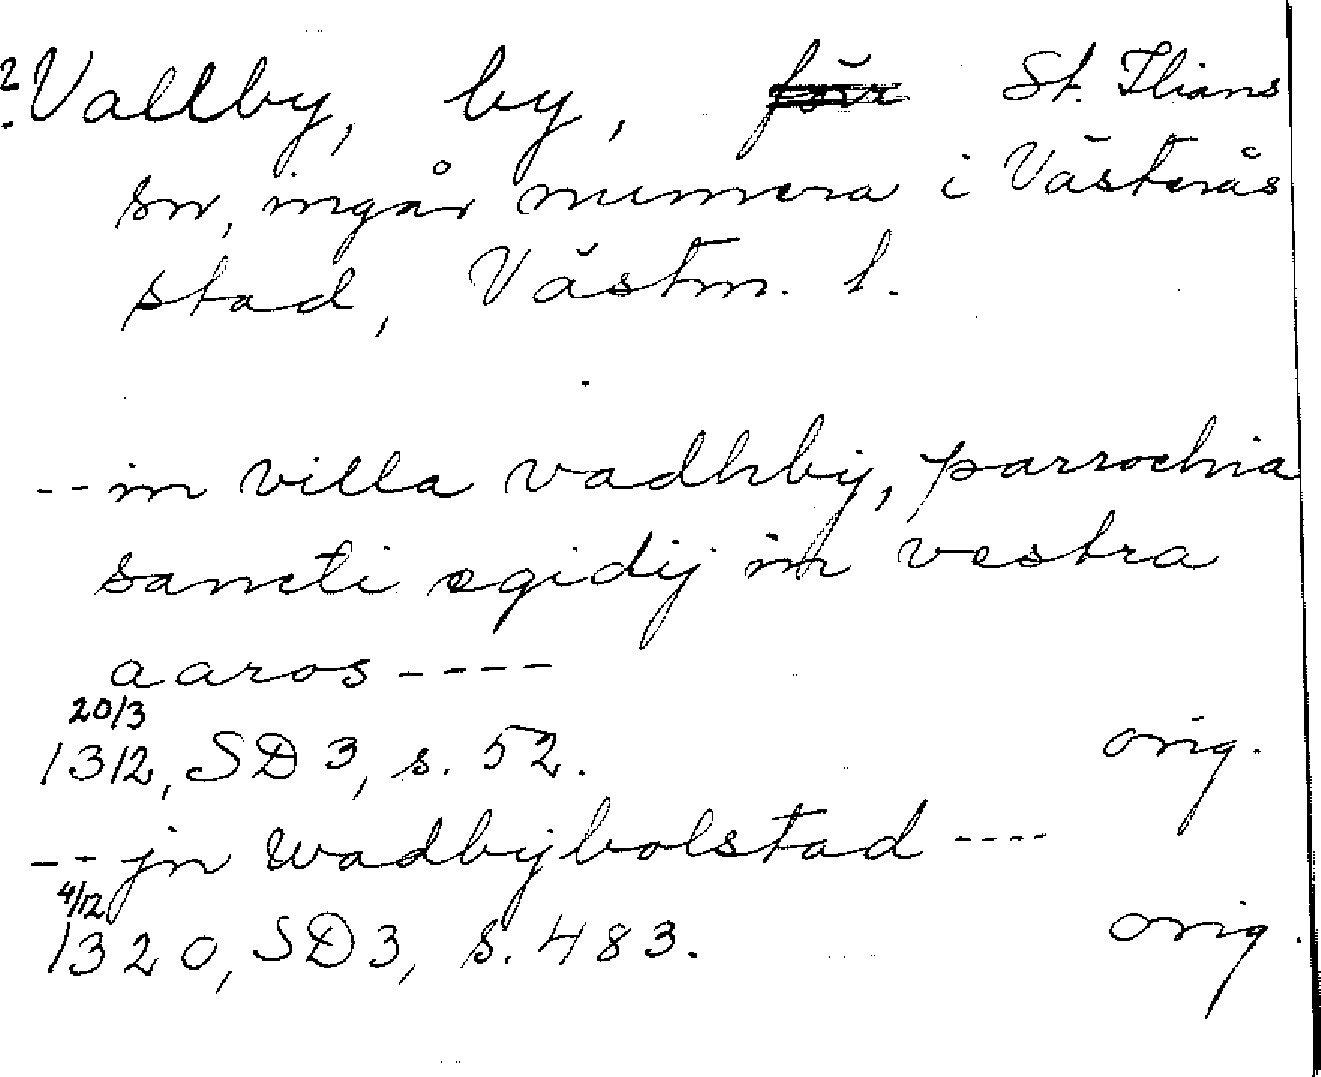 ? Vallby, by, förr St. Ilians
sn, ingår numera i Västerås
stad, Västm. l.
-- in villa vadhby, parrochia
sancti egidij in vestra
aaros ----
20/3
1312, SD 3, s. 52. orig.
-- jn wadbybolstad ----
4/12
1320, SD 3, s. 483. orig.